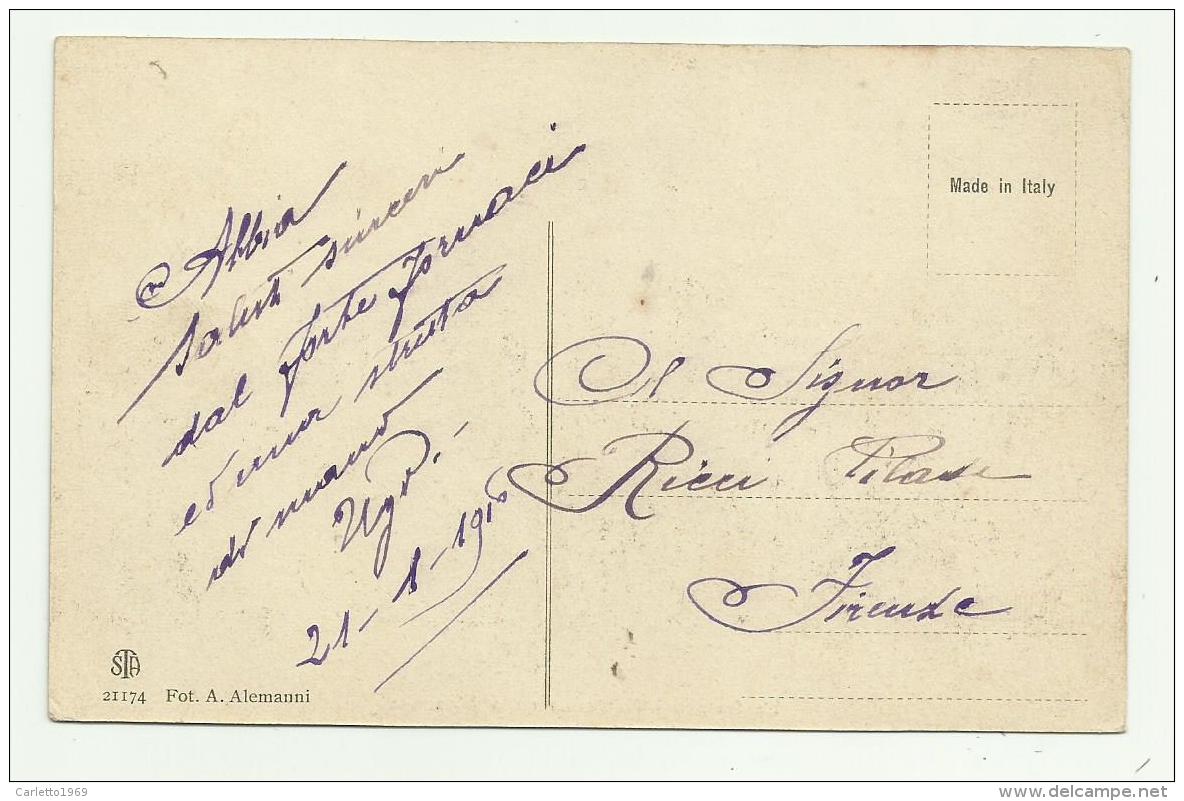 Abbia
saluti sinceri
dal forte Fornaci
ed una stretta
di mano
Ugo.
21-8-1916
Made in Italy
Al Signor
Ricci Pilade
Firenze
STA
21174 Fot. A. Alemanni
Carletto1969
www.delcampe.net